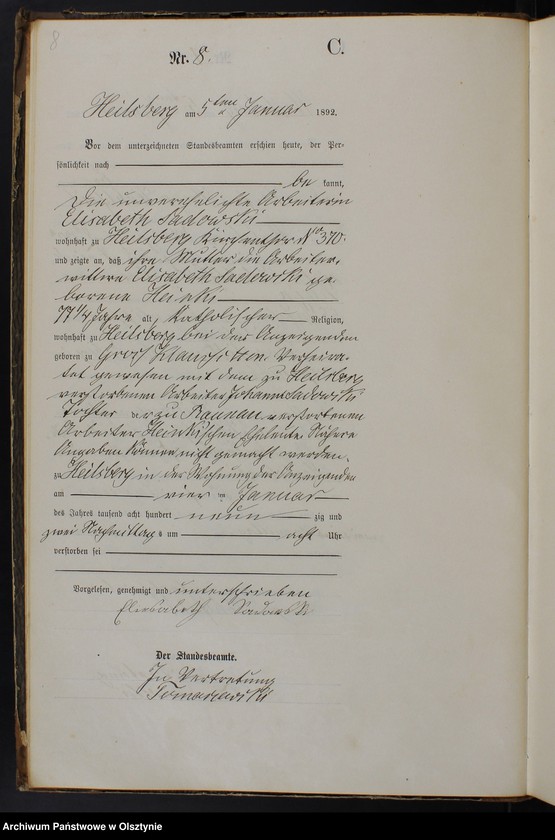 8
Nr. 8. C.
Heilsberg am 5ten Januar 1892.
Vor dem unterzeichneten Standesbeamten erschien heute, der Per-
sönlichkeit nach
be kannt,
die unverehelichte Arbeiterin
Elisabeth Sadowski
wohnhaft zu Heilsberg No 370.
und zeigte an, daß ihre Mutter die Arbeiter-
wittwe Elisabeth Sadowski ge
borene Heinki
77 1/4 Jahre alt, Katholischer Religion,
wohnhaft zu Heilsberg bei der Anzeigenden
geboren zu Groß Klaussitten Verheira-
tet gewesen mit dem zu Heilsberg
verstorbenen Arbeiter Johann Sadowski
Tochter der zu Raunau verstorbenen
Arbeiter Heinki'schen Eheleute. Nähere
Angaben können nicht gemacht werden.
zu Heilsberg in der Wohnung der Anzeigenden
am vier ten Januar
des Jahres tausend acht hundert neun zig und
zwei Nachmittags um acht Uhr
verstorben sei
Vorgelesen, genehmigt und unterschrieben
Elisabeth Sadowski
Der Standesbeamte.
In Vertretung
Archiwum Państwowe w Olsztynie